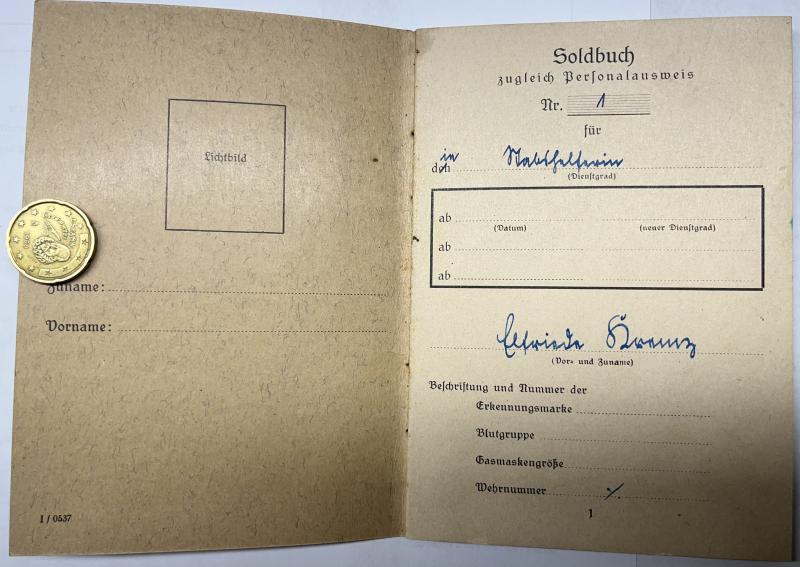 Lichtbild
Zuname:
Vorname:
I / 0537
Soldbuch
zugleich Personalausweis
Nr. 1
für
die Stabshelferin
(Dienstgrad)
ab
(Datum) (neuer Dienstgrad)
ab
ab
Elfriede Kremz
(Vor- und Zuname)
Beschriftung und Nummer der
Erkennungsmarke
Blutgruppe
Gasmaskengröße
Wehrnummer ./.
1